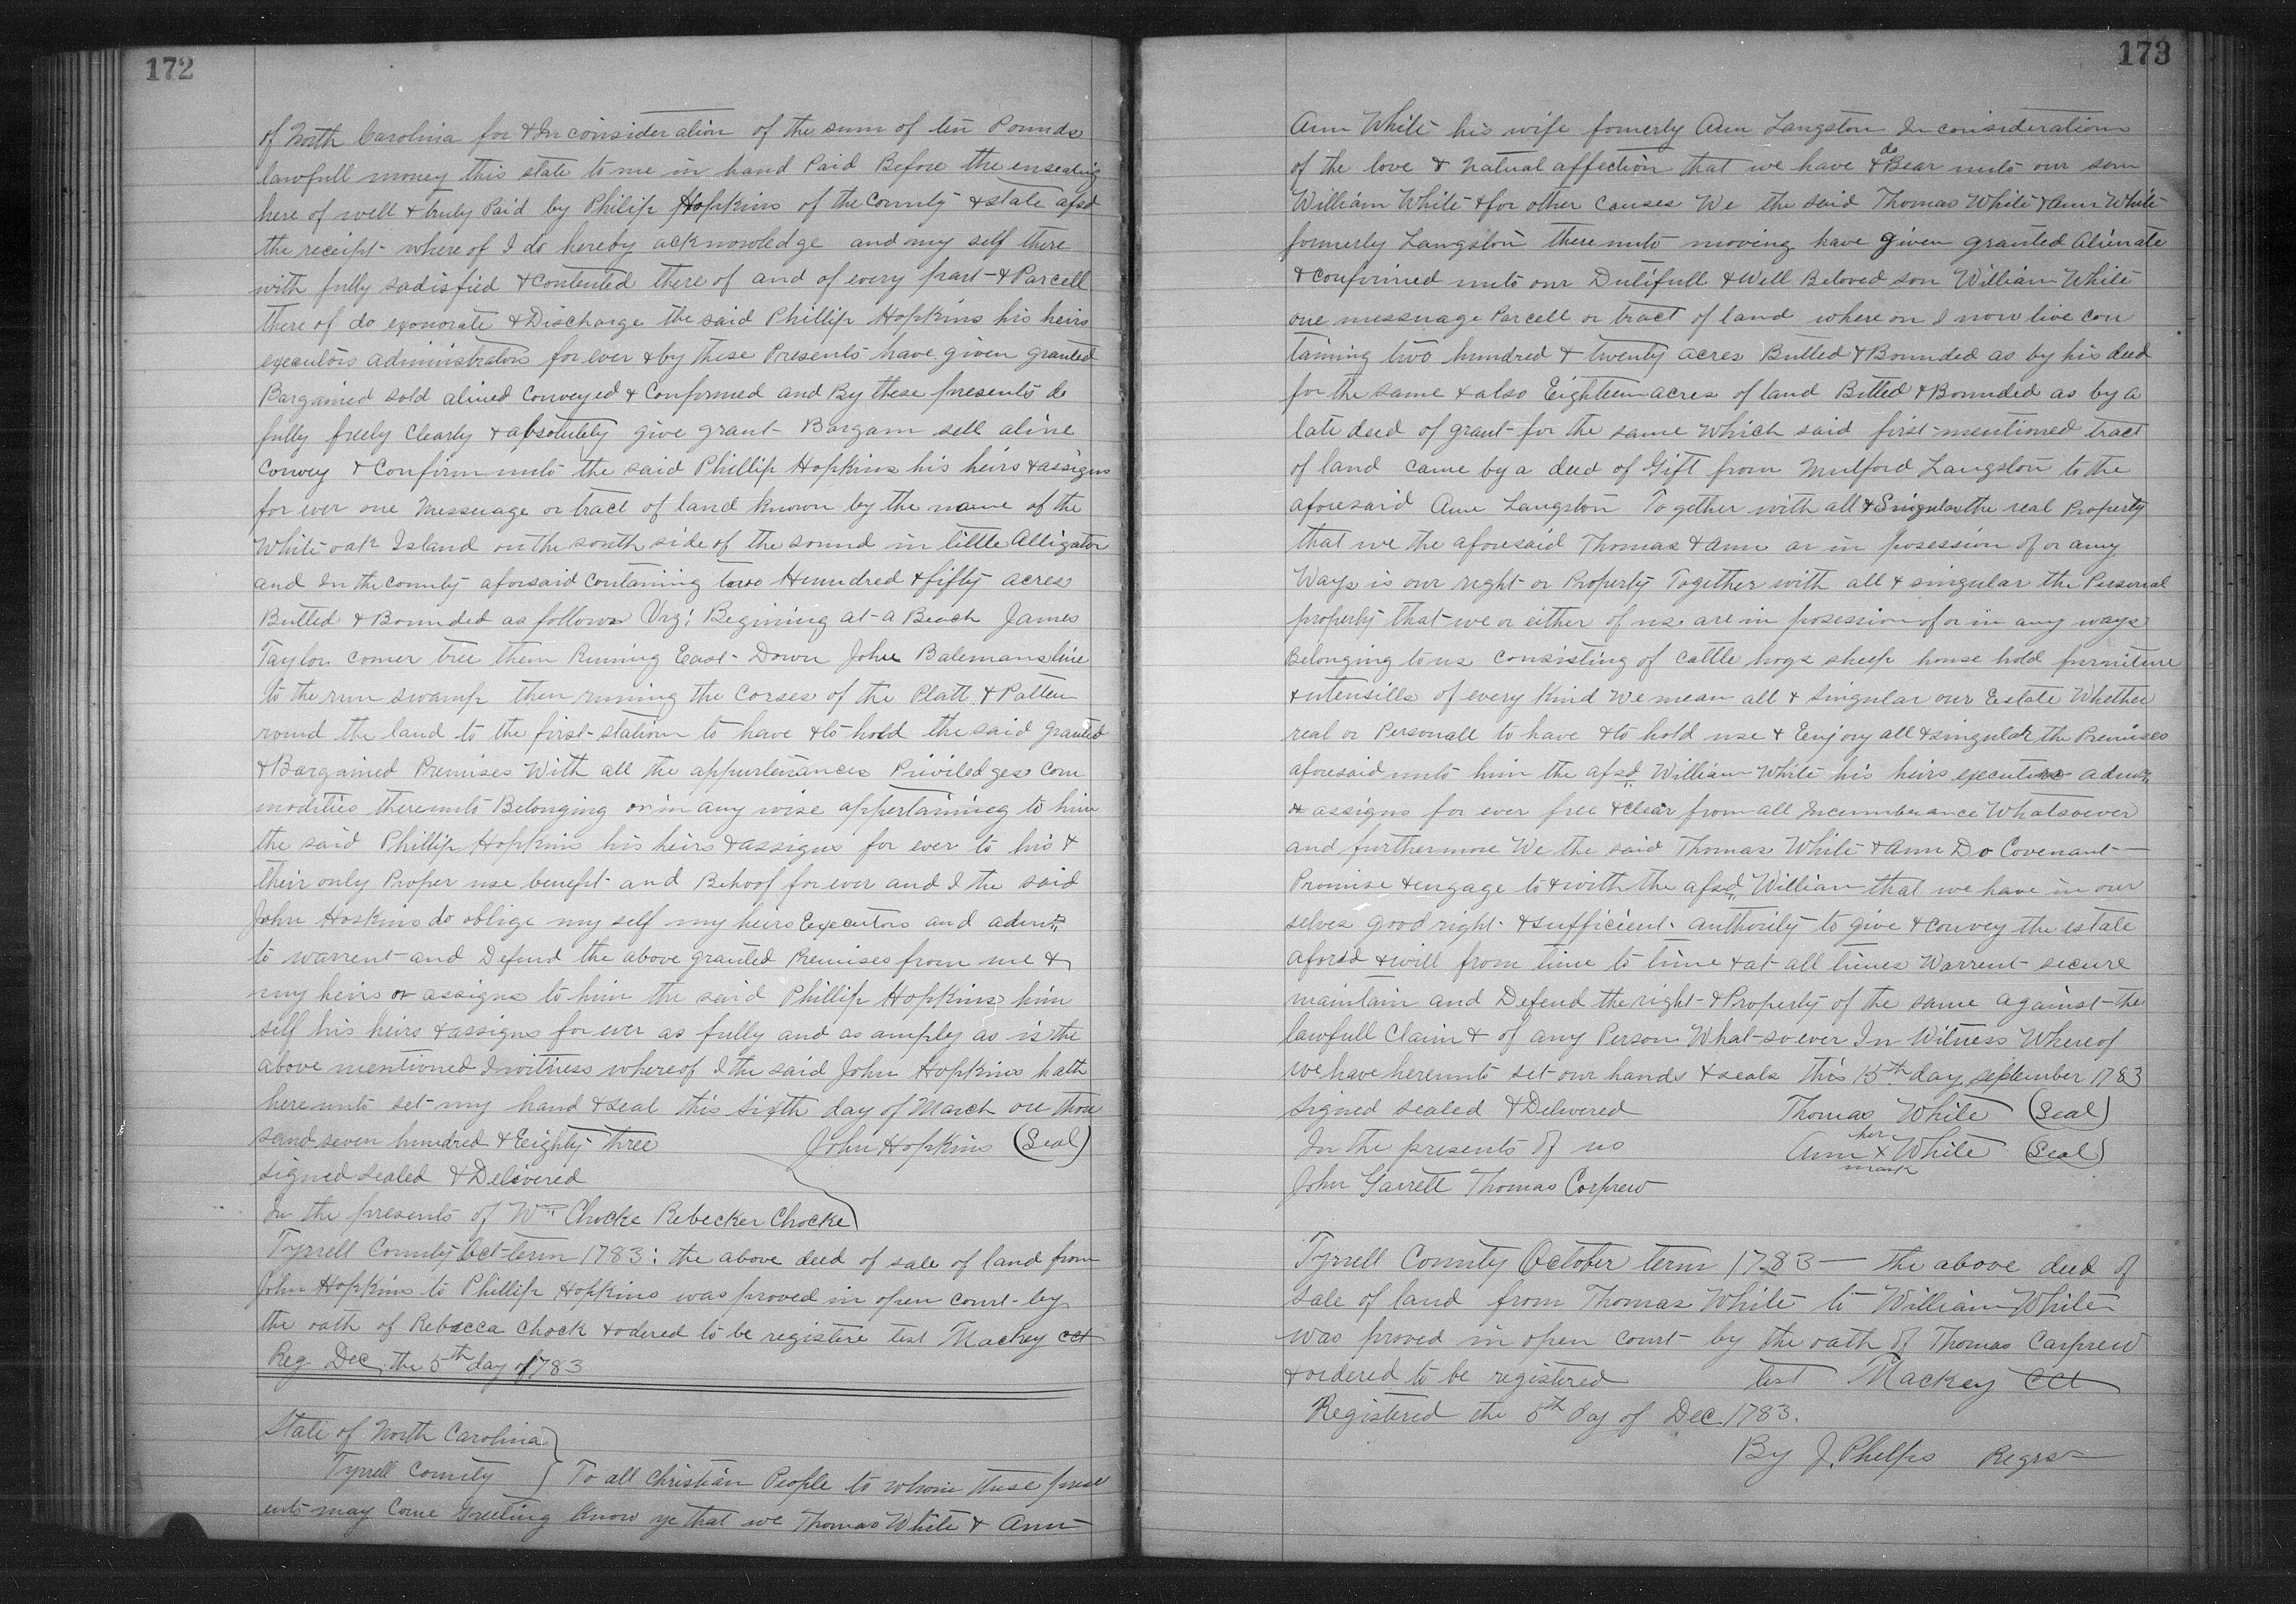 172
of North Carolina for & In consideration of the sum of ten Pounds
lawfull money this state to me in hand Paid Before the ensealing
here of well & truly Paid by Philip Hopkins of the County & state afsd
the receipt where of I do hereby acknowledge and my self there
with fully sadisfied & contented there of and of every part & Parcell
there of do exonorate & Discharge the said Phillip Hopkins his heirs
executors administrators for ever & by these Presents have given granted
Bargained sold alined Conveyed & Confirmed and By these presents do
fully freely Clearly & absolutely give grant Bargain sell aline
Convey & Confirm unto the said Phillip Hopkins his heirs & assigns
for ever one Messuage or tract of land known by the name of the
White oak Island on the south side of the sound in little Alligator
and In the county aforsaid Containing two Hundred & fifty acres
Butted & Bounded as follows Viz: Begining at a Beach James
Taylor corner tree then Runing East Down John Batemans line
to the run swamp then runing the Corses of the Platt & Patten
round the land to the first station to have & to hold the said granted
& Bargained Premises With all the appurtenances Priviledges com
modities thereunto Belonging or in any wise appertaining to him
the said Phillip Hopkins his heirs & assigns for ever to his &
their only Proper use benefit and Behoof for ever and I the said
John Hoskins do oblige my self my heirs Executors and admrs
to warrent and Defend the above granted Premises from me &
my heirs or assigns to him the said Phillip Hopkins him
self his heirs & assigns for ever as fully and as amply as is the
above mentioned In witness whereof I the said John Hopkins hath
hereunto set my hand & seal this sixth day of March one thou
sand seven hundred & Eighty three John Hopkins (Seal)
signed sealed & Delivered
In the presents of Wm Chocke Rebecker Chocke
Tyrrell County Oct term 1783: the above deed of sale of land from
John Hopkins to Phillip Hopkins was proved in open court by
the oath of Rebacca Chock & odered to be registere test Mackey CCt
Reg Dec. the 5th day of 1783
State of North Carolina }
Tyrrell County } To all Christian People to whom these pres
ents may Come Greeting Know ye that we Thomas White & Ann
173
Ann White his wife fomerly Ann Langston In consideration
of the love & natual affection that we have & do Bear unto our son
William White & for other causes We the said Thomas White & Ann White
formerly Langston thereunto moving have given granted Alienate
& confirmed unto our Dutifull & Well Beloved son William White
one messuage Parcell or tract of land where on I now live con
taining two hundred & twenty acres Butted & Bounded as by his deed
for the same & also Eighteen acres of land Butted & Bounded as by a
late deed of grant for the same which said first mentioned tract
of land came by a deed of Gift from Mulford Langston to the
aforesaid Ann Langston Together with all & Singular the real Property
that we the aforesaid Thomas & Ann ar in posession of or any
Ways is our right or Property Together with all & singular the Personal
property that we or either of us are in posession of or in any ways
Belonging to us consisting of Cattle hogs sheep house hold furniture
& utensills of every kind We mean all & Singular our Estate Whether
real or Personall to have & to hold use & Eenjoy all & singular the Premises
aforesaid unto him the afsd William White his heirs executors admrs
& assigns for ever free & clear from all Incumberance Whatsoever
and furthermore We the said Thomas White & Ann Do Covenant
Promise & engage to & with the afsd William that we have in our
selves good right & sufficient authority to give & convey the estate
aforsd & will from time to time & at all times Warrent secure
maintain and Defend the right & Property of the same against the
lawfull Claim & of any Person What-so ever In Witness Whereof
we have hereunto set our hands & seals this 15th day september 1783
signed sealed & Delivered Thomas White (Seal)
In the presents of us Ann her x mark White (Seal)
John Garrett Thomas Corprew
Tyrrell County October term 1783 — the above deed of
sale of land from Thomas White to William White
was proved in open court by the oath of Thomas Carprew
& ordered to be registered test Mackey CCt
Registered the 5th day of Dec. 1783.
By J. Phelps Regrs